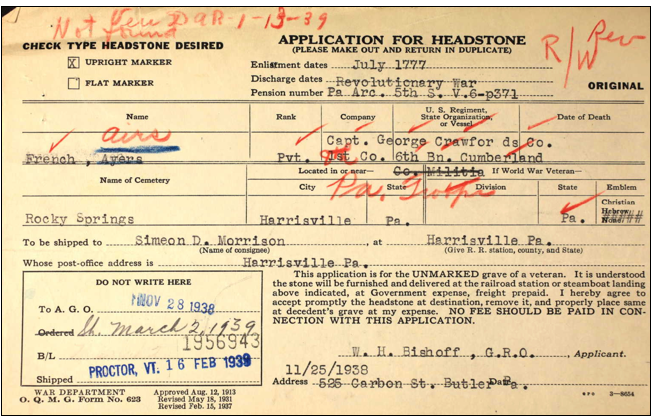 Not found Veri DAR-1-13-39
CHECK TYPE HEADSTONE DESIRED
X UPRIGHT MARKER
FLAT MARKER
APPLICATION FOR HEADSTONE
(PLEASE MAKE OUT AND RETURN IN DUPLICATE)
Enlistment dates July 1777
Discharge dates Revolutionary War
Pension number Pa Arc. 5th S. V.6-p371
R/W Rev
ORIGINAL
Name Rank Company U. S. Regiment, State Organization, or Vessel Date of Death
Capt. George Crawfor ds Co.
French , Ayers Pvt. 1st Co. 6th Bn. Cumberland
Located in or near— Co. Militia If World War Veteran—
Pa. Troops
Name of Cemetery City State Division State Emblem
Christian
Hebrew
None
Rocky Springs Harrisville Pa. Pa. #####
To be shipped to Simeon D. Morrison , at Harrisville Pa.
(Name of consignee) (Give R. R. station, county, and State)
Whose post-office address is Harrisville Pa.
DO NOT WRITE HERE
To A. G. O. NOV 28 1938
Ordered Sh. March 2, 1939
1956943
B/L
PROCTOR, VT. 16 FEB 1939
Shipped
This application is for the UNMARKED grave of a veteran. It is understood
the stone will be furnished and delivered at the railroad station or steamboat landing
above indicated, at Government expense, freight prepaid. I hereby agree to
accept promptly the headstone at destination, remove it, and properly place same
at decedent's grave at my expense. NO FEE SHOULD BE PAID IN CON-
NECTION WITH THIS APPLICATION.
W. H. Bishoff , G.R.O. , Applicant.
11/25/1938
Address 525 Carbon St. Butler Pa.
WAR DEPARTMENT
O. Q. M. G. Form No. 623
Approved Aug. 12, 1913
Revised May 18, 1931
Revised Feb. 15, 1937
GPO 3—8654